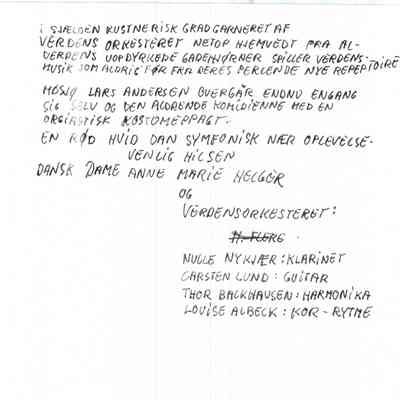 I SJÆLDEN KUSTNERISK GRAD GARNERET AF
VERDENS ORKESTERET NETOP HJEMVEDT FRA AL-
VERDENS UOPDYRKEDE GADEHJØRNER SPILLER VERDENS-
MUSIK SOM ALDRIG FØR FRA DERES PERLENDE NYE REPERTOIRE
MOSJØ LARS ANDERSEN OVERGÅR ENDNU ENGANG
SIG SELV OG DEN ALDRENDE KOMIDIENNE MED EN
ORGIASTISK KOSTUMEPPAGT.
EN RØD HVID DAN SYMFONISK NÆR OPLEVELSE.
VENLIG HILSEN
DANSK DAME ANNE MARIE HELGER
OG
VERDENSORKESTERET:
NULLE NYKJÆR: KLARINET
CARSTEN LUND: GUITAR
THOR BACKHAUSEN: HARMONIKA
LOUISE ALBECK: KOR - RYTME